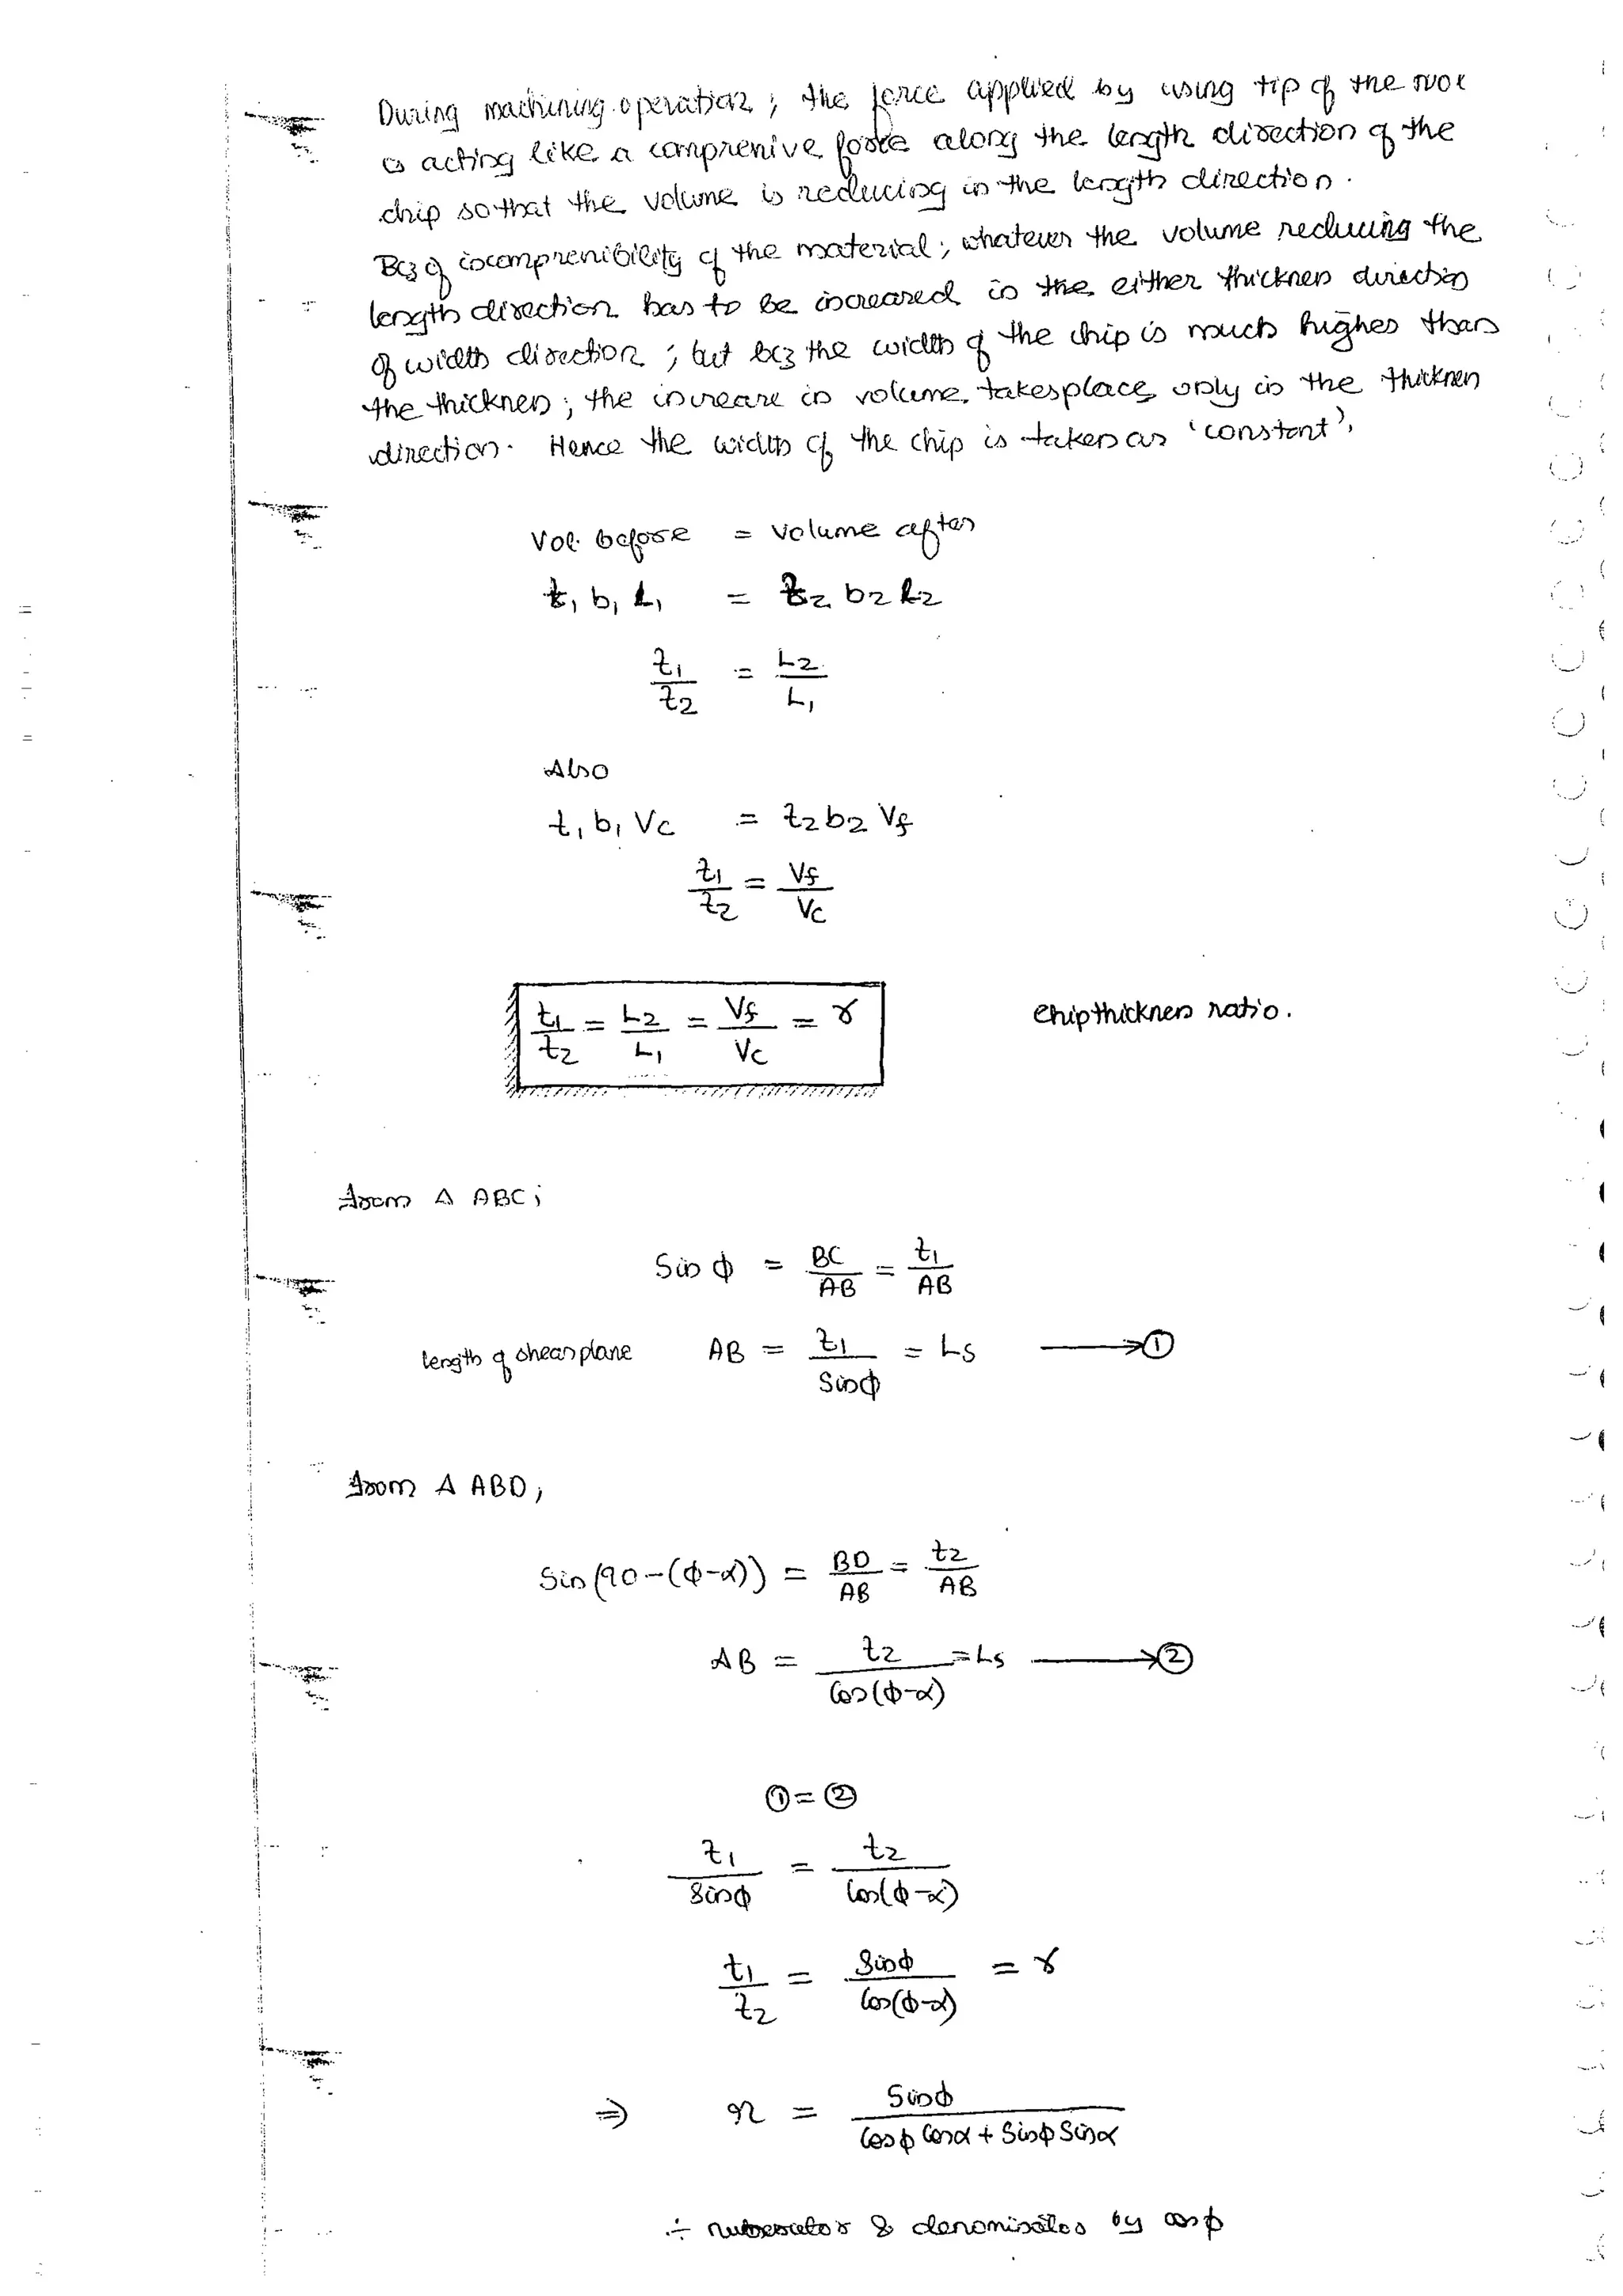 During machining operation ; the force applied by using tip of the tool
is acting like a compressive force along the length direction of the
chip so that the volume is reducing in the length direction.
Bcz of incompressibility of the material ; whatever the volume reducing the
length direction has to be increased in the either thickness direction
or width direction ; but bcz the width of the chip is much higher than
the thickness ; the increase in volume takesplace only in the thickness
direction. Hence the width of the chip is taken as 'constant'.
Vol. before = volume after
t₁ b₁ L₁ = t₂ b₂ L₂
t₁/t₂ = L₂/L₁
Also
t₁ b₁ Vc = t₂ b₂ Vf
t₁/t₂ = Vf/Vc
t₁/t₂ = L₂/L₁ = Vf/Vc = r
chip thickness ratio.
from Δ ABC ;
Sin ϕ = BC/AB = t₁/AB
length of shear plane AB = t₁/Sinϕ = Ls ⟶ ①
from Δ ABD ;
Sin (90-(ϕ-α)) = BD/AB = t₂/AB
AB = t₂/Cos(ϕ-α) = Ls ⟶ ②
① = ②
t₁/Sinϕ = t₂/Cos(ϕ-α)
t₁/t₂ = Sinϕ/Cos(ϕ-α) = r
⇒ r = Sinϕ/(Cosϕ Cosα + Sinϕ Sinα)
÷ numerator & denominator by cosϕ